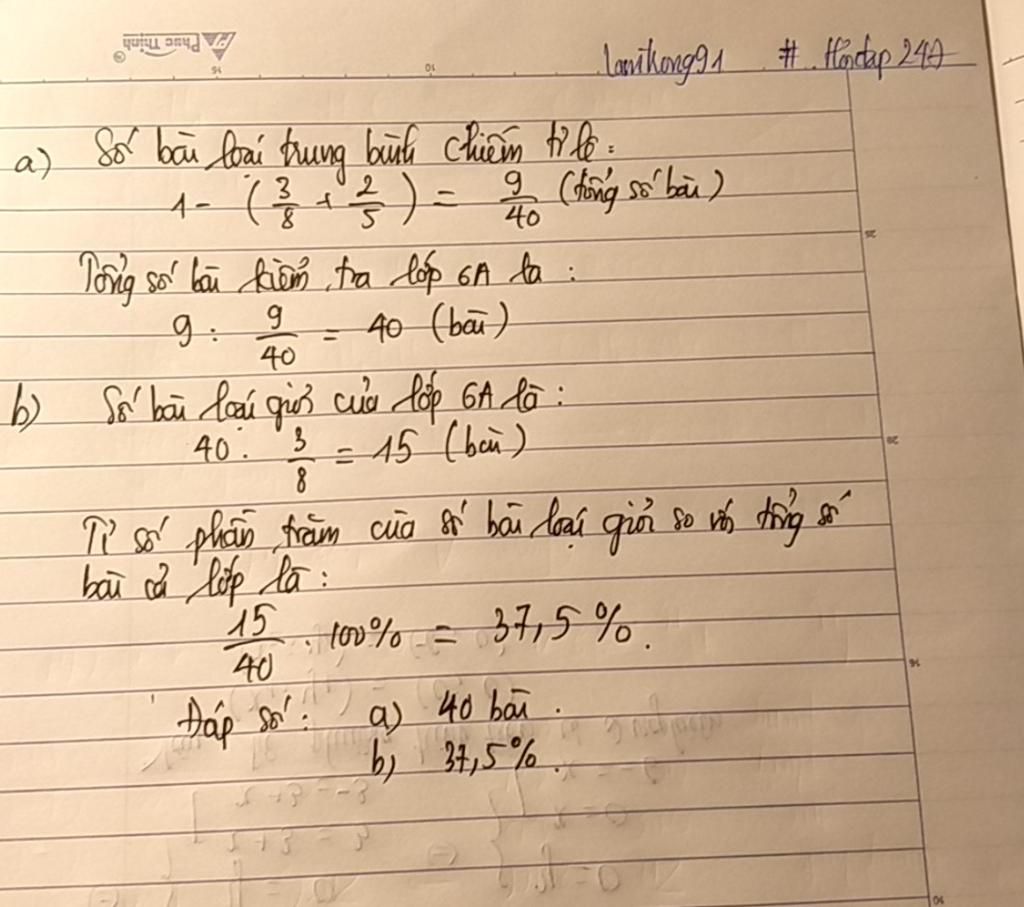 Phuc Thinh®
lamkong91 # Hỏidap 247
a) Số bài loại trung bình chiếm tỉ lệ:
1 - (3/8 + 2/5) = 9/40 (tổng số bài)
Tổng số bài kiểm tra lớp 6A là:
9 : 9/40 = 40 (bài)
b) Số bài loại giỏi của lớp 6A là:
40 . 3/8 = 15 (bài)
Tỉ số phần trăm của số bài loại giỏi so với tổng số
bài cả lớp là:
15/40 . 100% = 37,5%.
Đáp số: a) 40 bài.
b) 37,5%.